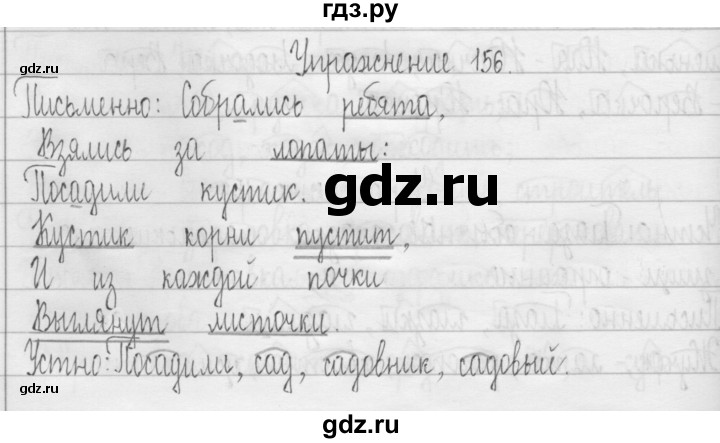 гдз.ру
Упражнение 156.
Письменно: Собрались ребята,
Взялись за лопаты:
Посадили кустик.
gdz.ru
Кустик корни пустит,
И из каждой почки
Выглянут листочки.
Устно: Посадили, сад, садовник, садовый.
gdz.ru